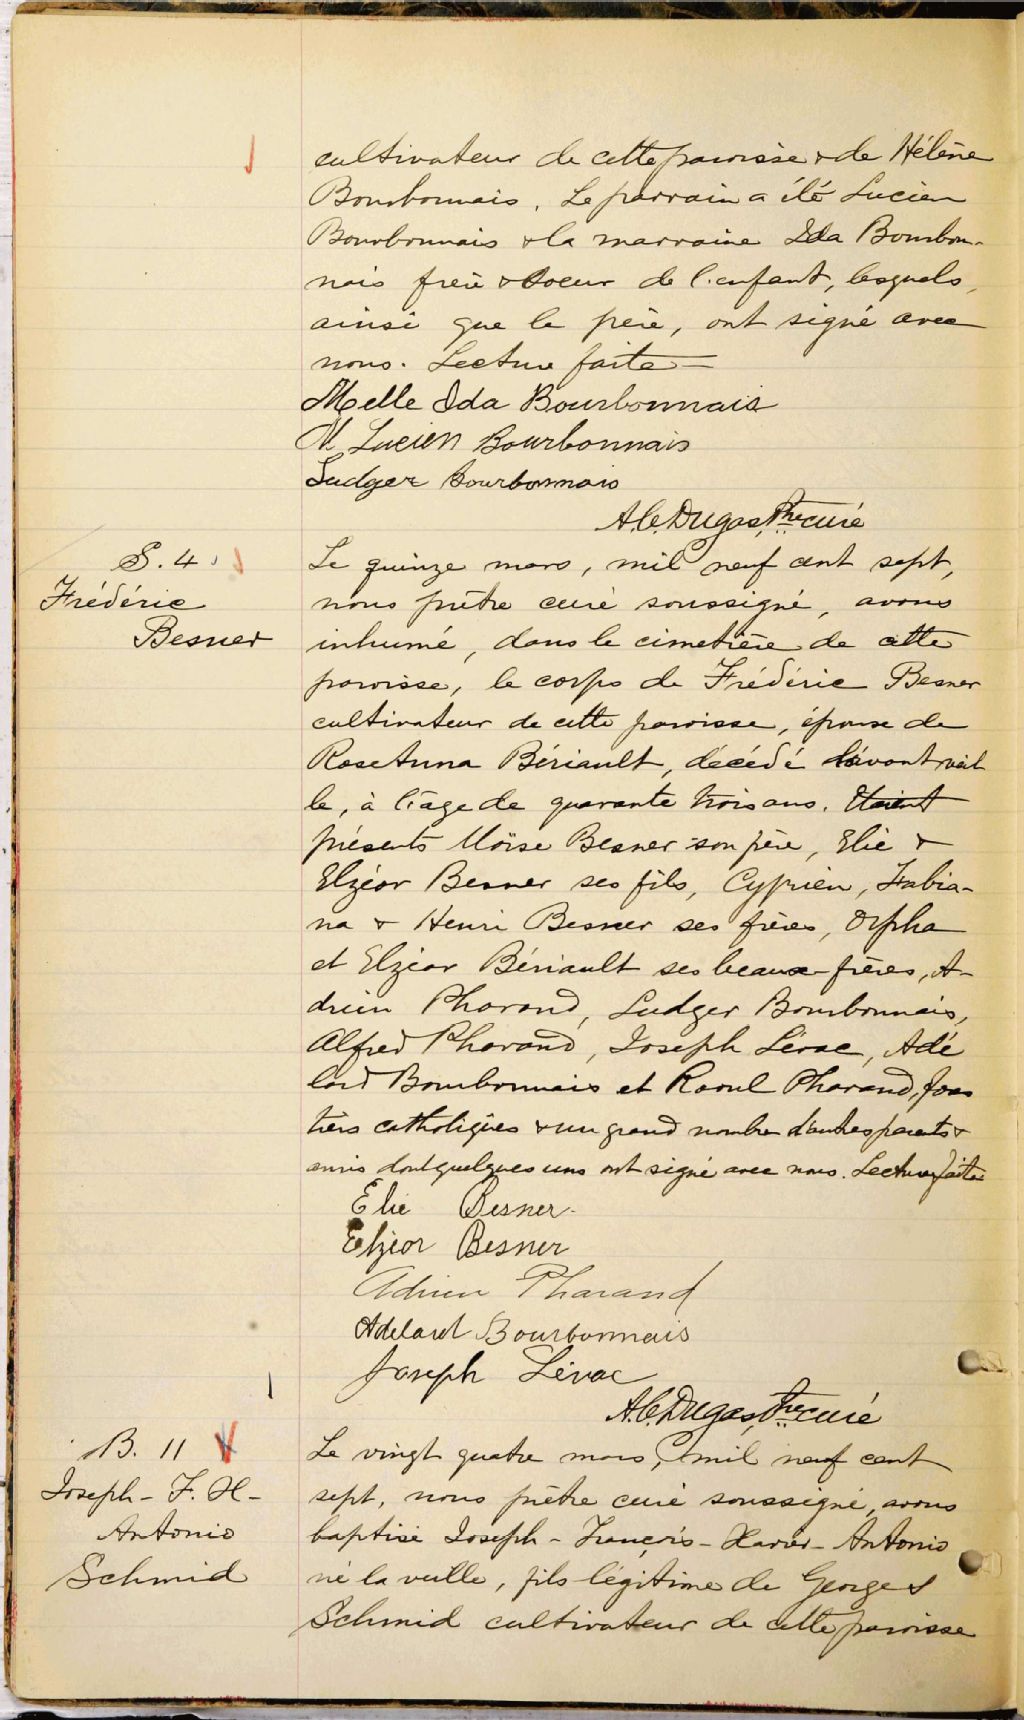 cultivateur de cette paroisse & de Hélène
Bourbonnais. Le parrain a été Lucien
Bourbonnais & la marraine Ida Bourbon-
nais frère & soeur de l'enfant, lesquels,
ainsi que le père, ont signé avec
nous. Lecture faite
Melle Ida Bourbonnais
M Lucien Bourbonnais
Ludger Bourbonnais
A.C. Dugas, Ptre curé
S. 4
Frédéric
Besner
Le quinze mars, mil neuf cent sept,
nous prêtre curé soussigné, avons
inhumé, dans le cimetière de cette
paroisse, le corps de Frédéric Besner
cultivateur de cette paroisse, époux de
Rose Anna Bériault, décédé l'avant veil
le, à l'âge de quarante trois ans. Etaient
présents Moïse Besner son père, Elie &
Elzéar Besner ses fils, Cyprien, Fabia-
na & Henri Besner ses frères, Orpha
et Elzéar Bériault ses beaux-frères, A-
drien Pharand, Ludger Bourbonnais,
Alfred Pharand, Joseph Lévac, Adé
lard Bourbonnais et Raoul Pharand, fores
tiers catholiques & un grand nombre d'autres parents &
amis dont quelques uns ont signé avec nous. Lecture faite
Elie Besner
Elzéar Besner
Adrien Pharand
Adelard Bourbonnais
Joseph Lévac
A.C. Dugas, Ptre curé
B. 11
Joseph - F. X -
Antonio
Schmid
Le vingt quatre mars, mil neuf cent
sept, nous prêtre curé soussigné, avons
baptisé Joseph - François - Xavier - Antonio
né la veille, fils légitime de Georges
Schmid cultivateur de cette paroisse